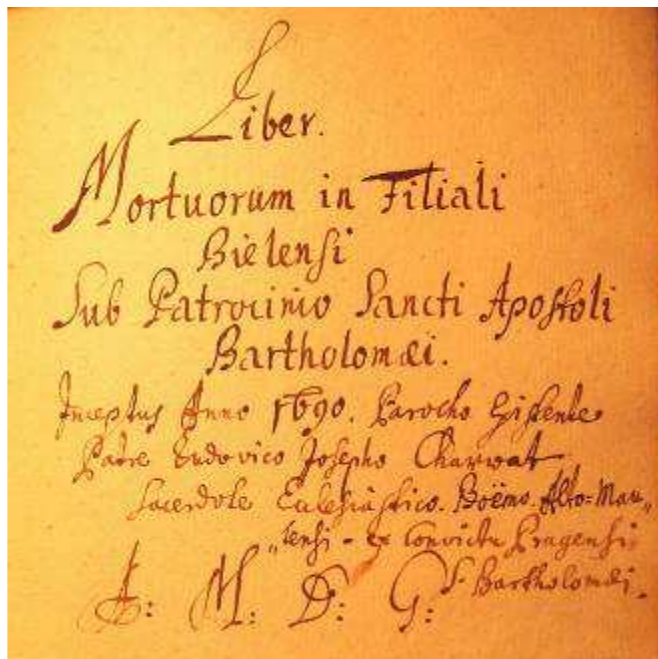 Liber.
Mortuorum in Filiali
Bielensi
Sub Patrocinio Sancti Apostoli
Bartholomæi.
Inceptus Anno 1690. Parocho Existente
Patre Ludovico Josepho Charwat
Sacerdote Ecclesiastico. Boëmo. Alto=Mau„
„tensi - ex Convictu Pragensi
S. Bartholomæi.
A: M: D: G: